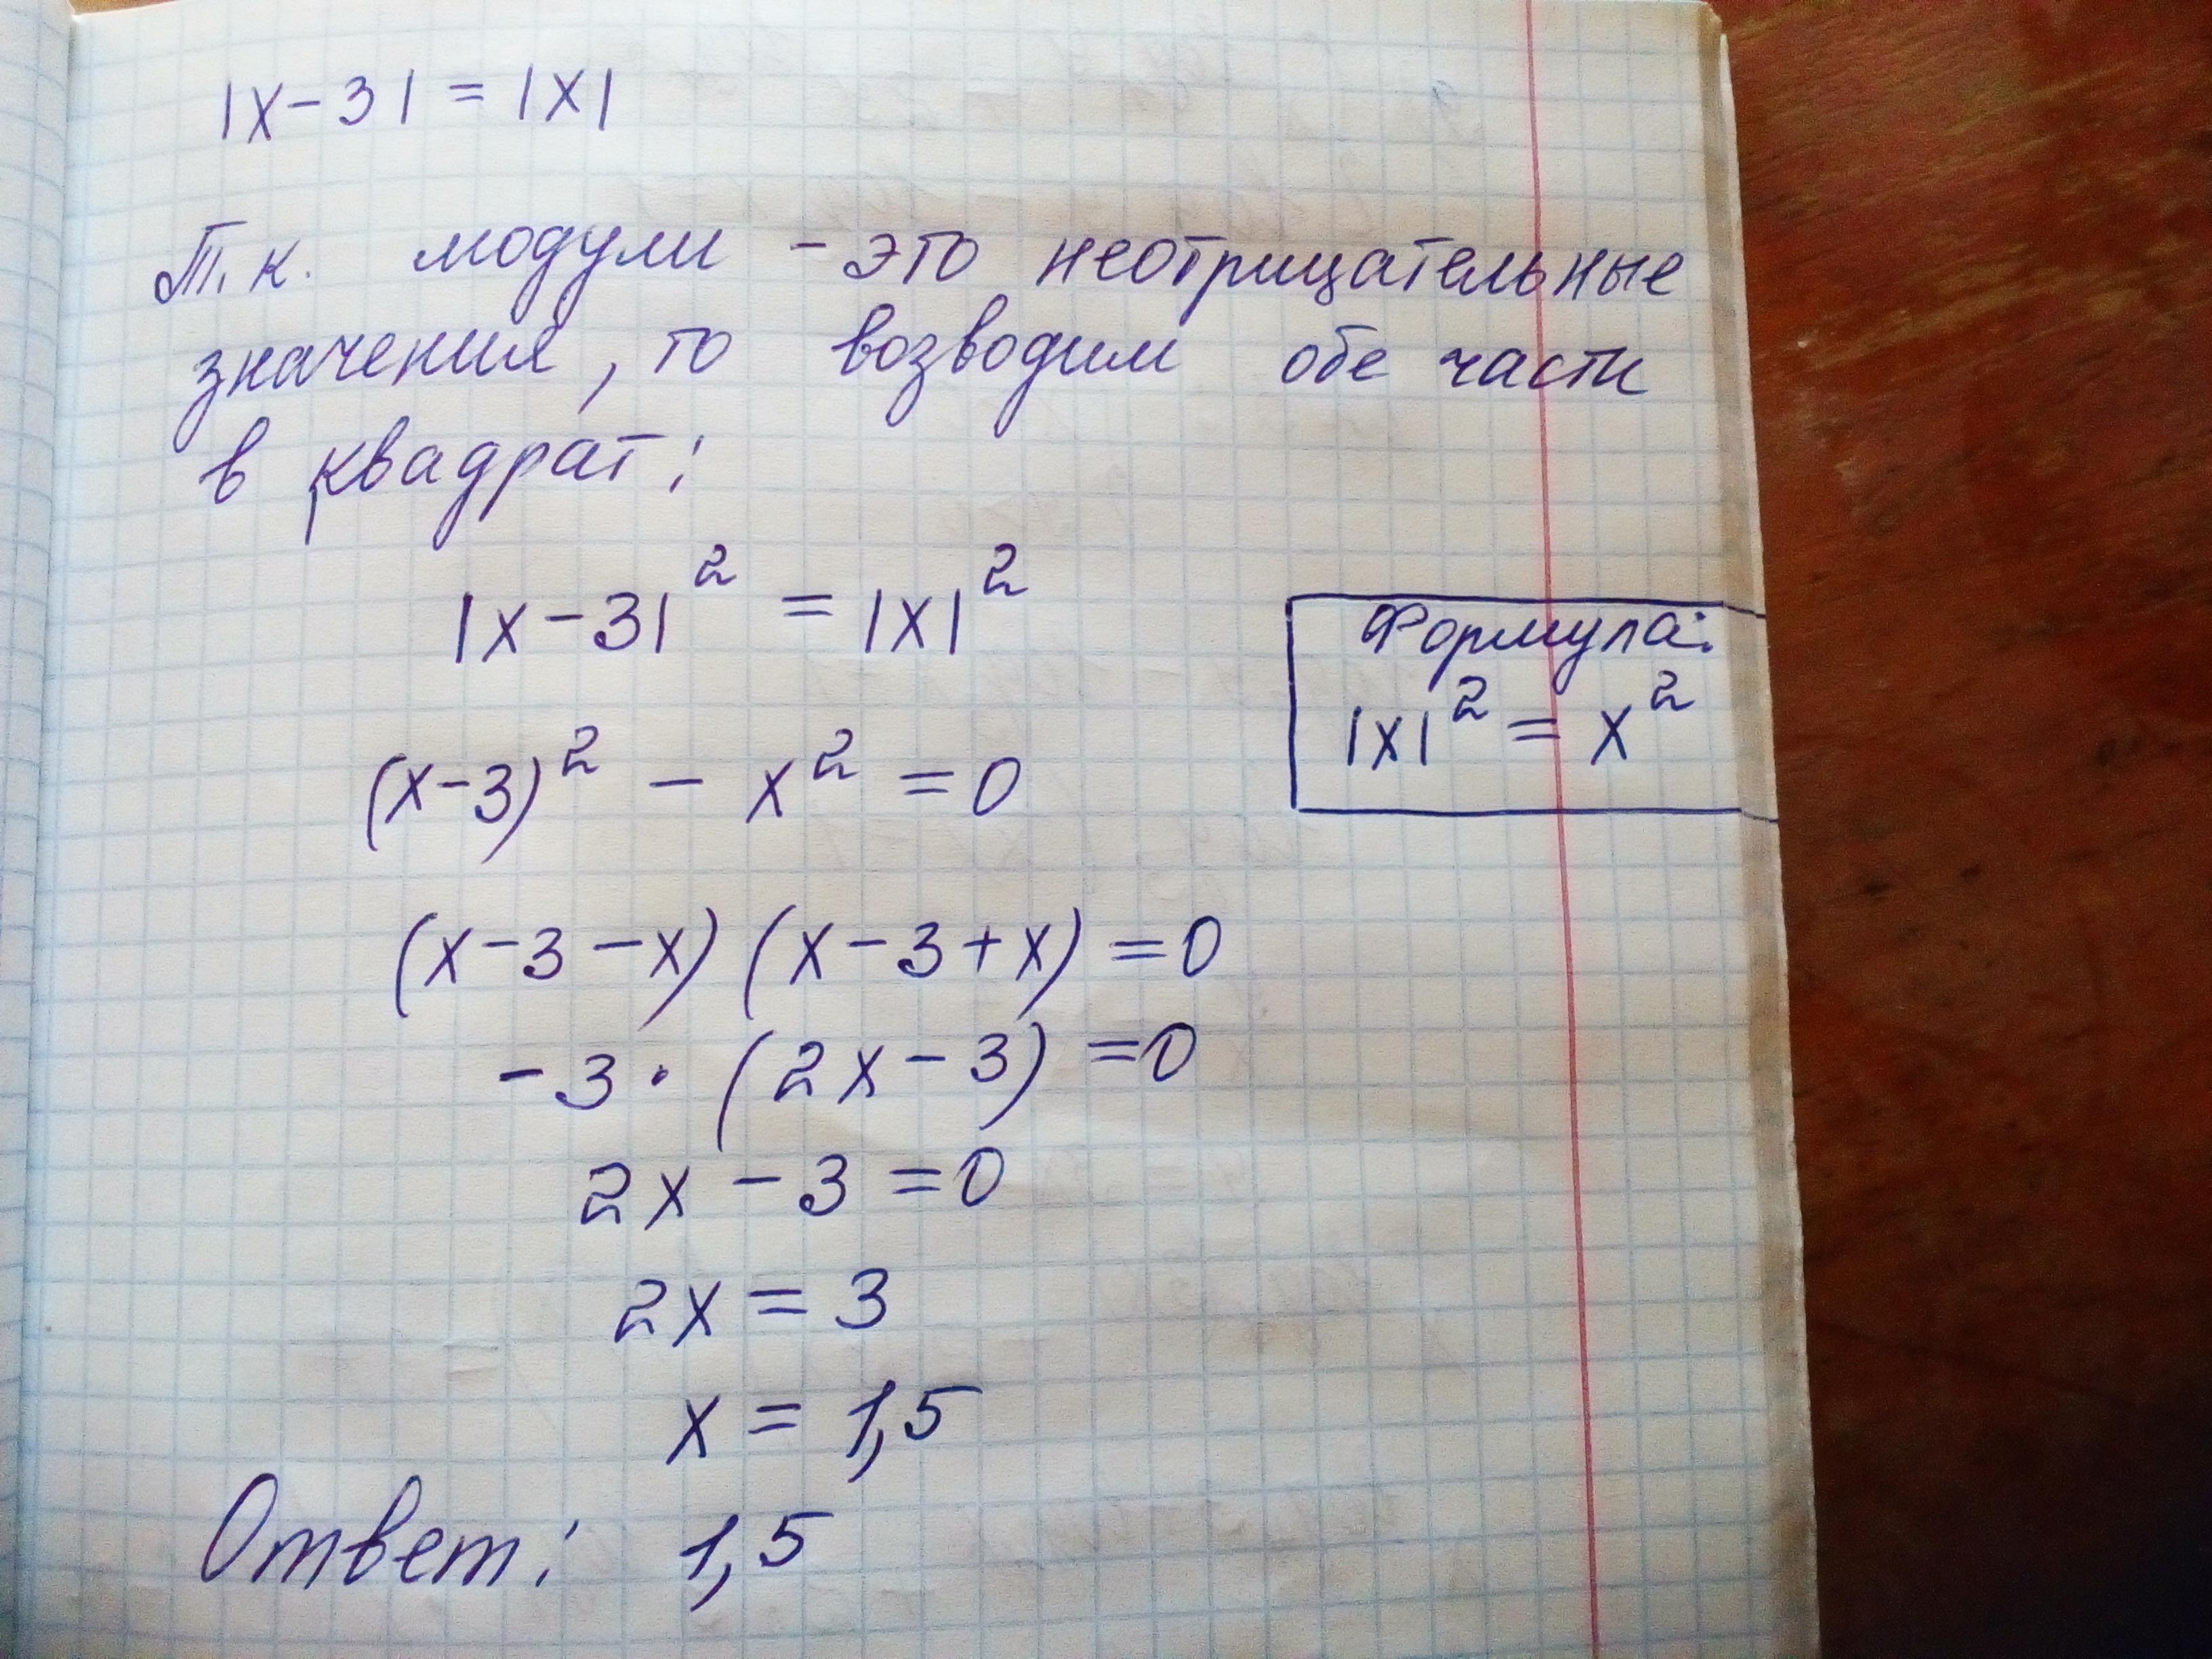 |x-3| = |x|
Т.к. модули - это неотрицательные
значения, то возводим обе части
в квадрат:
|x-3|² = |x|²
Формула:
|x|² = x²
(x-3)² - x² = 0
(x-3-x)(x-3+x) = 0
-3·(2x-3) = 0
2x-3 = 0
2x = 3
x = 1,5
Ответ: 1,5